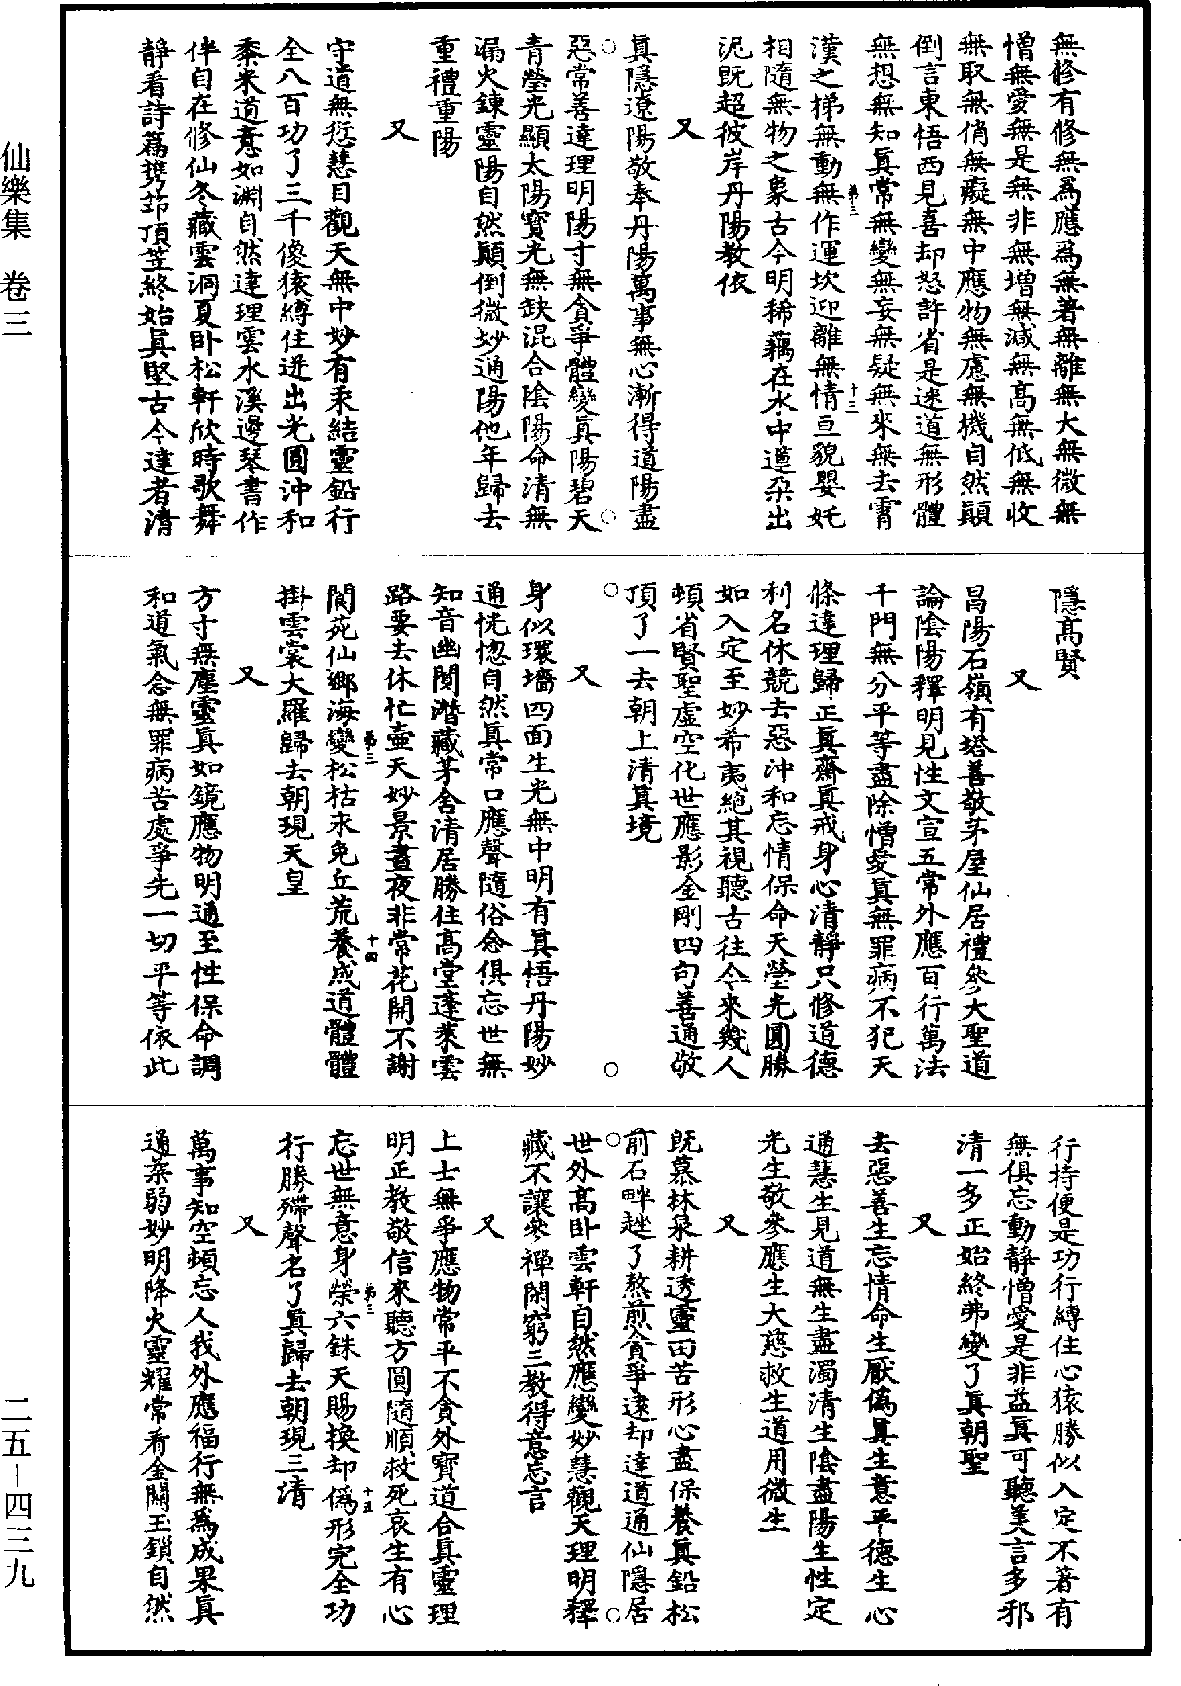 無修有修無爲應爲無著無離無大無微無
憎無愛無是無非無增無減無高無低無收
無取無俏無癡無中應物無慮無機自然顛
倒言東悟西見喜却怒許省是迷道無形體
無想無知眞常無變無妄無疑無來無去霄
漢之梯無動無作運坎迎離無情亘貌嬰奼
第三
十三
相隨無物之象古今明稀藕在水中蓮朶出
泥既超彼岸丹陽教依
又
眞隱遼陽敬奉丹陽萬事無心漸得道陽盡
惡常善達理明陽寸無貪爭體變眞陽碧天
青瑩光顯太陽寶光無缺混合陰陽命清無
漏火鍊靈陽自然顛倒微妙通陽他年歸去
重禮重陽
又
守道無愆慧目觀天無中妙有汞結靈鉛行
全八百功了三千傻猿縛住迸出光圓沖和
黍米道意如淵自然達理雲水溪邊琴書作
伴自在修仙冬藏雲洞夏卧松軒欣時歌舞
靜看詩篇携筇頂笠終始眞堅古今達者清
隱高賢
又
昌陽石嶺有塔善敬茅屋仙居禮參大聖道
論陰陽釋明見性文宣五常外應百行萬法
千門無分平等盡除憎愛眞無罪病不犯天
條達理歸正眞齋眞戒身心清靜只修道德
利名休競去惡沖和忘情保命天瑩光圓勝
如入定至妙希夷絶其視聽古往今來幾人
頓省賢聖虛空化世應影金剛四句善通敬
頂了一去朝上清眞境
又
身似環墻四面生光無中明有眞悟丹陽妙
通恍惚自然眞常口應聲隨俗念俱忘世無
知音幽閑潛藏茅舍清居勝住高堂蓬萊雲
路要去休忙壺天妙景晝夜非常花開不謝
第三
十四
閬苑仙鄉海變松枯來免丘荒養成道體體
掛雲裳大羅歸去朝現天皇
又
方寸無塵靈眞如鏡應物明通至性保命調
和道氣念無罪病苦處爭先一切平等依此
行持便是功行縛住心猿勝似入定不著有
無俱忘動靜憎愛是非益眞可聽美言多邪
清一多正始終弗變了眞朝聖
又
去惡善生忘情命生厭僞眞生意平德生心
通慧生見道無生盡濁清生陰盡陽生性定
光生敬參應生大慈救生道用微生
又
既慕林泉耕透靈田苦形心盡保養眞鉛松
前石畔趓了熬煎貪爭逮却達道通仙隱居
世外高卧雲軒自然應變妙慧觀天理明釋
藏不讓參禪閑窮三教得意忘言
又
上士無爭應物常平不貪外寶道合眞靈理
明正教敬信來聽方圓隨順救死哀生有心
忘世無意身榮六銖天賜換却僞形完全功
第三
十五
行勝殢聲名了眞歸去朝現三清
又
萬事知空頓忘人我外應福行無爲成果眞
通柔弱妙明降火靈耀常看金關玉鎖自然
仙樂集　卷三
二五—四三九